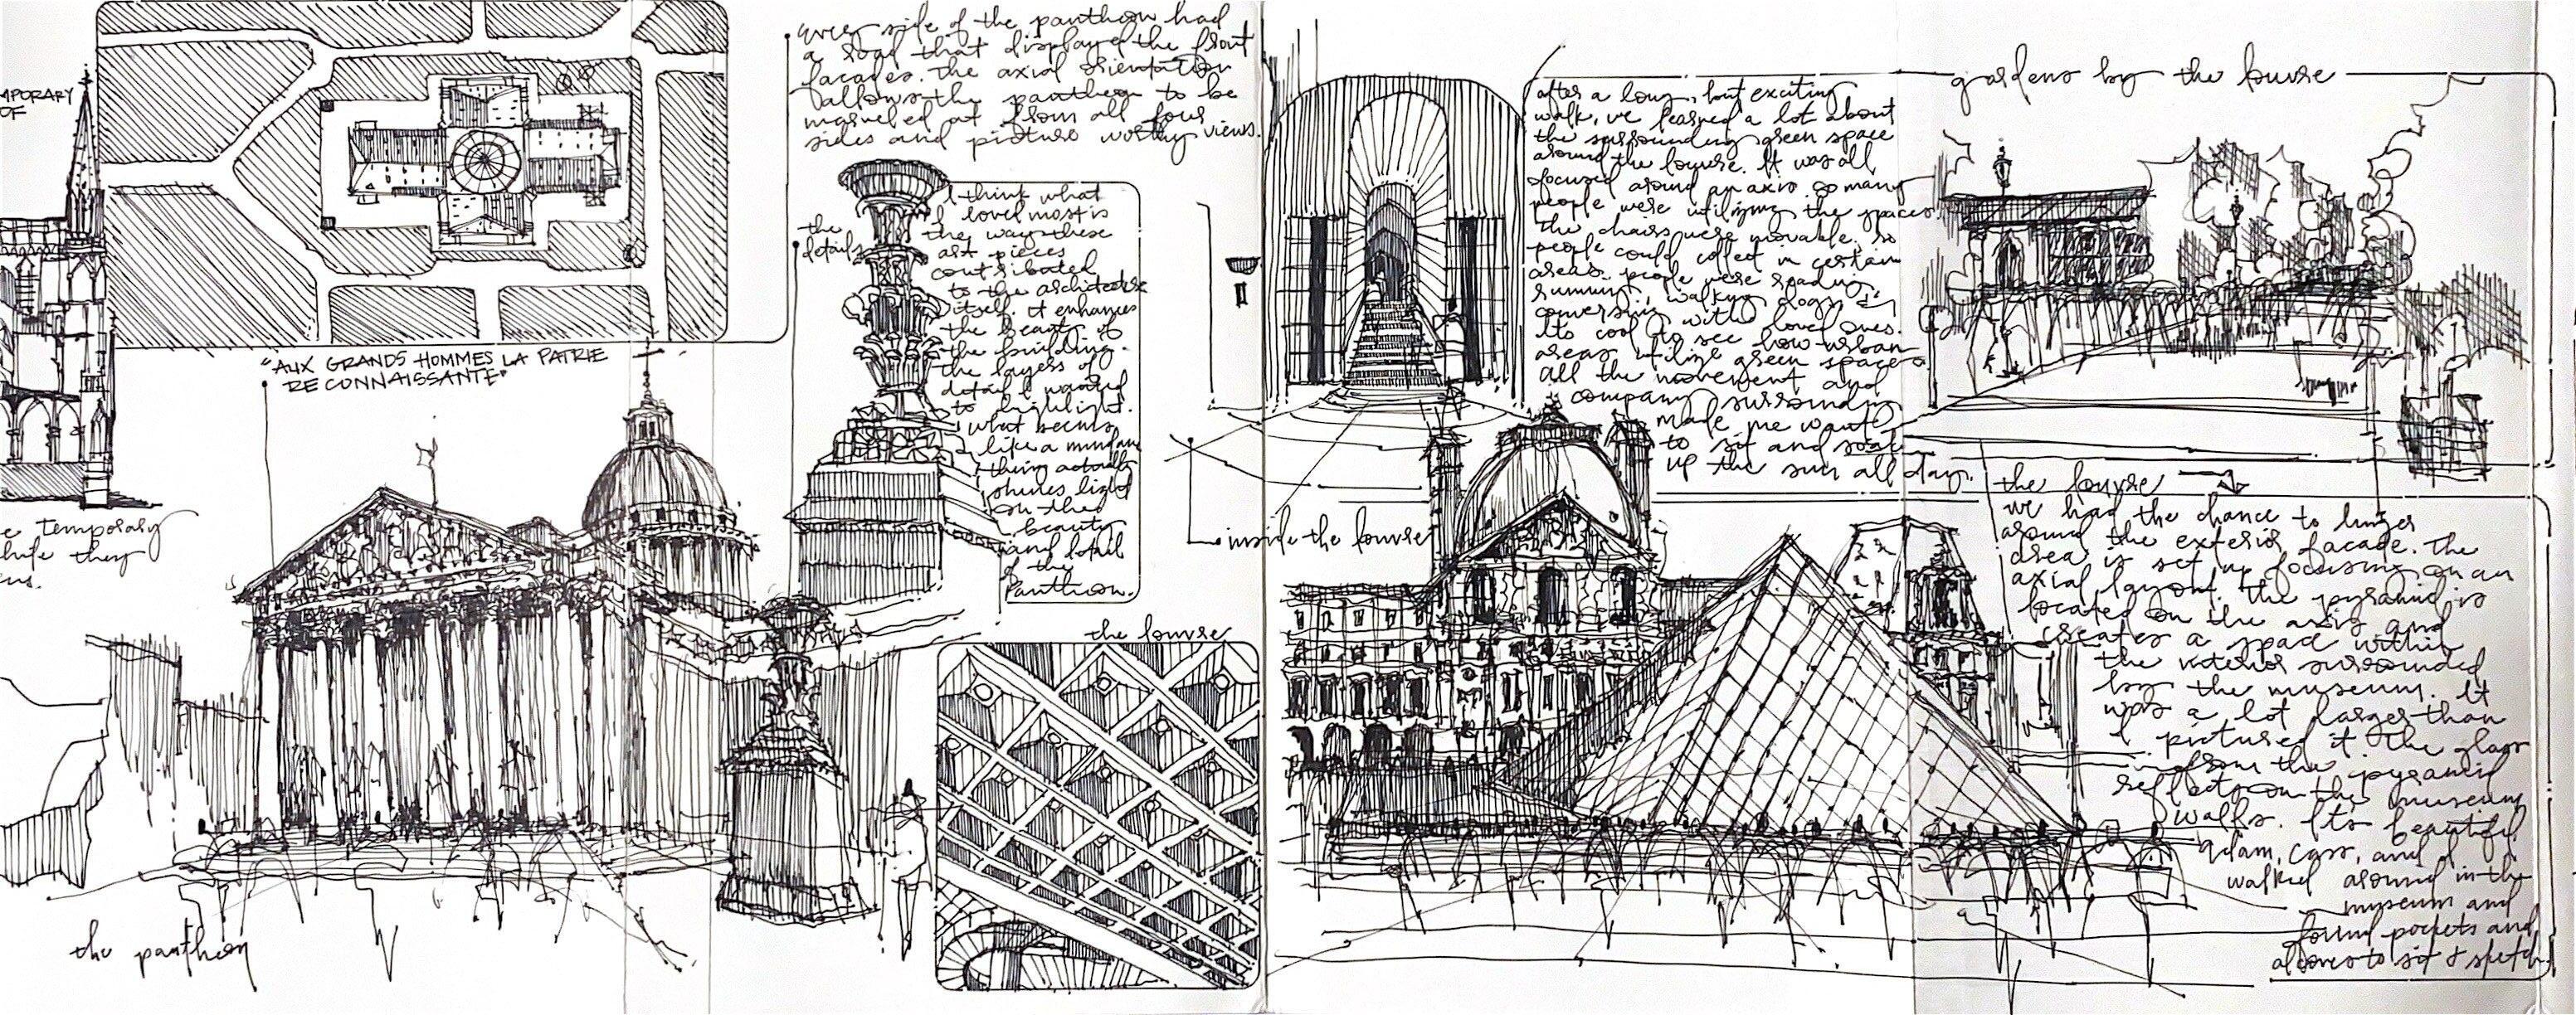 MPORARY
OF
e temporary
while they
every side of the pantheon had
a road that displayed the front
facades. the axial orientation
allows the pantheon to be
marveled at from all four
sides and picture worthy views.
"AUX GRANDS HOMMES LA PATRIE
RECONNAISSANTE"
the
details
I think what
I loved most is
the way these
art pieces
contributed
to the architecture
itself. it enhances
the beauty of
the building.
the layers of
detail I wanted
to highlight.
what seems
like a mundane
thing actually
shines light
on the
beauty
and detail
of the
Pantheon.
the pantheon
the louvre
inside the louvre
after a long, but exciting
walk, we learned a lot about
the surrounding green space
around the louvre. It was all
focused around an axis. so many
people were utilizing the spaces.
the chairs were movable so
people could collect in certain
areas. people were reading,
running, walking dogs, &
conversing with loved ones.
Its cool to see how urban
areas utilize green spaces
all the movement and
company surrounding
made me want
to sit and soak
up the sun all day.
gardens by the louvre
the louvre
we had the chance to linger
around the exterior facade. The
area is set up focusing on an
axial layout. the pyramid is
located on the axis and
creates a space within
the interior surrounded
by the museum. It
was a lot larger than
I pictured it. The glass
from the pyramid
reflects on the museum
walls. Its beautiful.
Adam, Cass, and I
walked around in the
museum and
found pockets and
alcoves to sit & sketch.